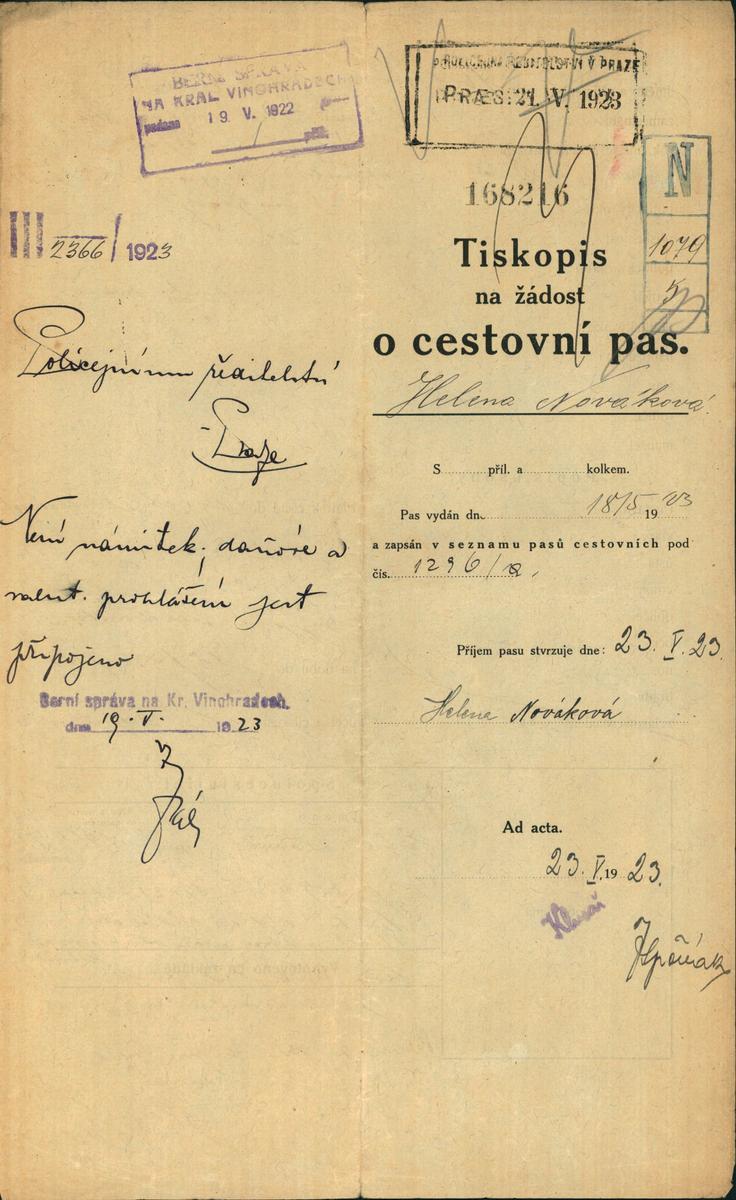 BERNÍ SPRÁVA
NA KRÁL. VINOHRADECH
podáno 19 V. 1922
příl.
III 2366 / 1923
Policejnímu ředitelství
Praze
Není námitek, daňové a
valut. prohlášení jest
připojeno
Berní správa na Kr. Vinohradech.
dne 19. V. 1923
POLICEJNÍ ŘEDITELSTVÍ V PRAZE
PRÆS: 21. V. 1923
168216
N
1079
5
Tiskopis
na žádost
o cestovní pas.
Helena Nováková.
S příl. a kolkem.
Pas vydán dne 18/5 1923
a zapsán v seznamu pasů cestovních pod
čís. 1296/a.
Příjem pasu stvrzuje dne: 23. V. 23.
Helena Nováková
Ad acta.
23. V. 1923.